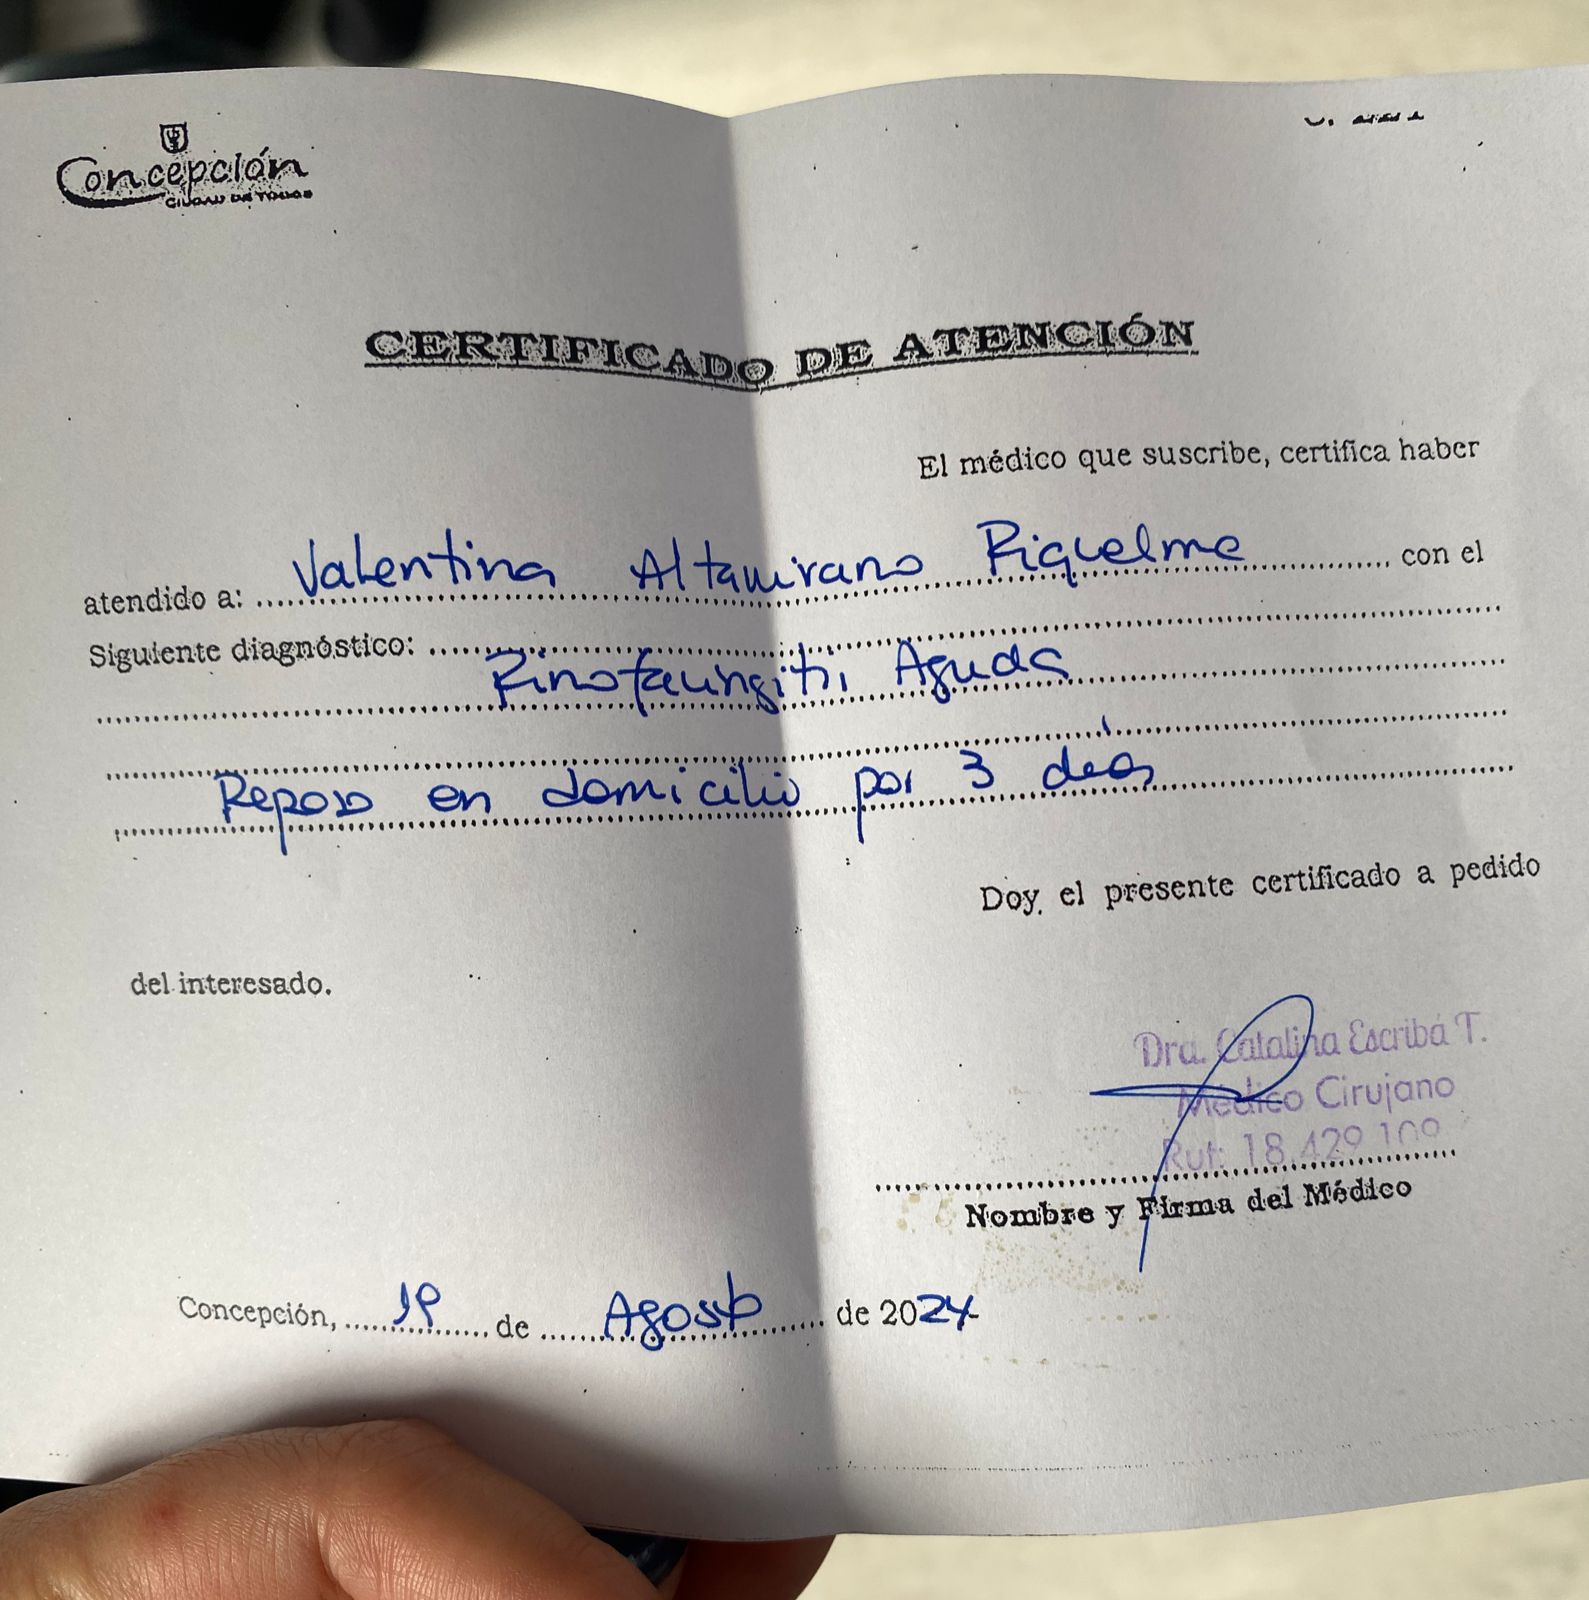 Concepción
CIUDAD DE TODOS
CERTIFICADO DE ATENCIÓN
El médico que suscribe, certifica haber
atendido a: Valentina Altamirano Riquelme con el
Siguiente diagnóstico:
Rinofaringitis Aguda
Reposo en domicilio por 3 días
Doy el presente certificado a pedido
del interesado.
Dra. Catalina Escribá T.
Médico Cirujano
Rut: 18.429
Nombre y Firma del Médico
Concepción, 19 de Agosto de 2024